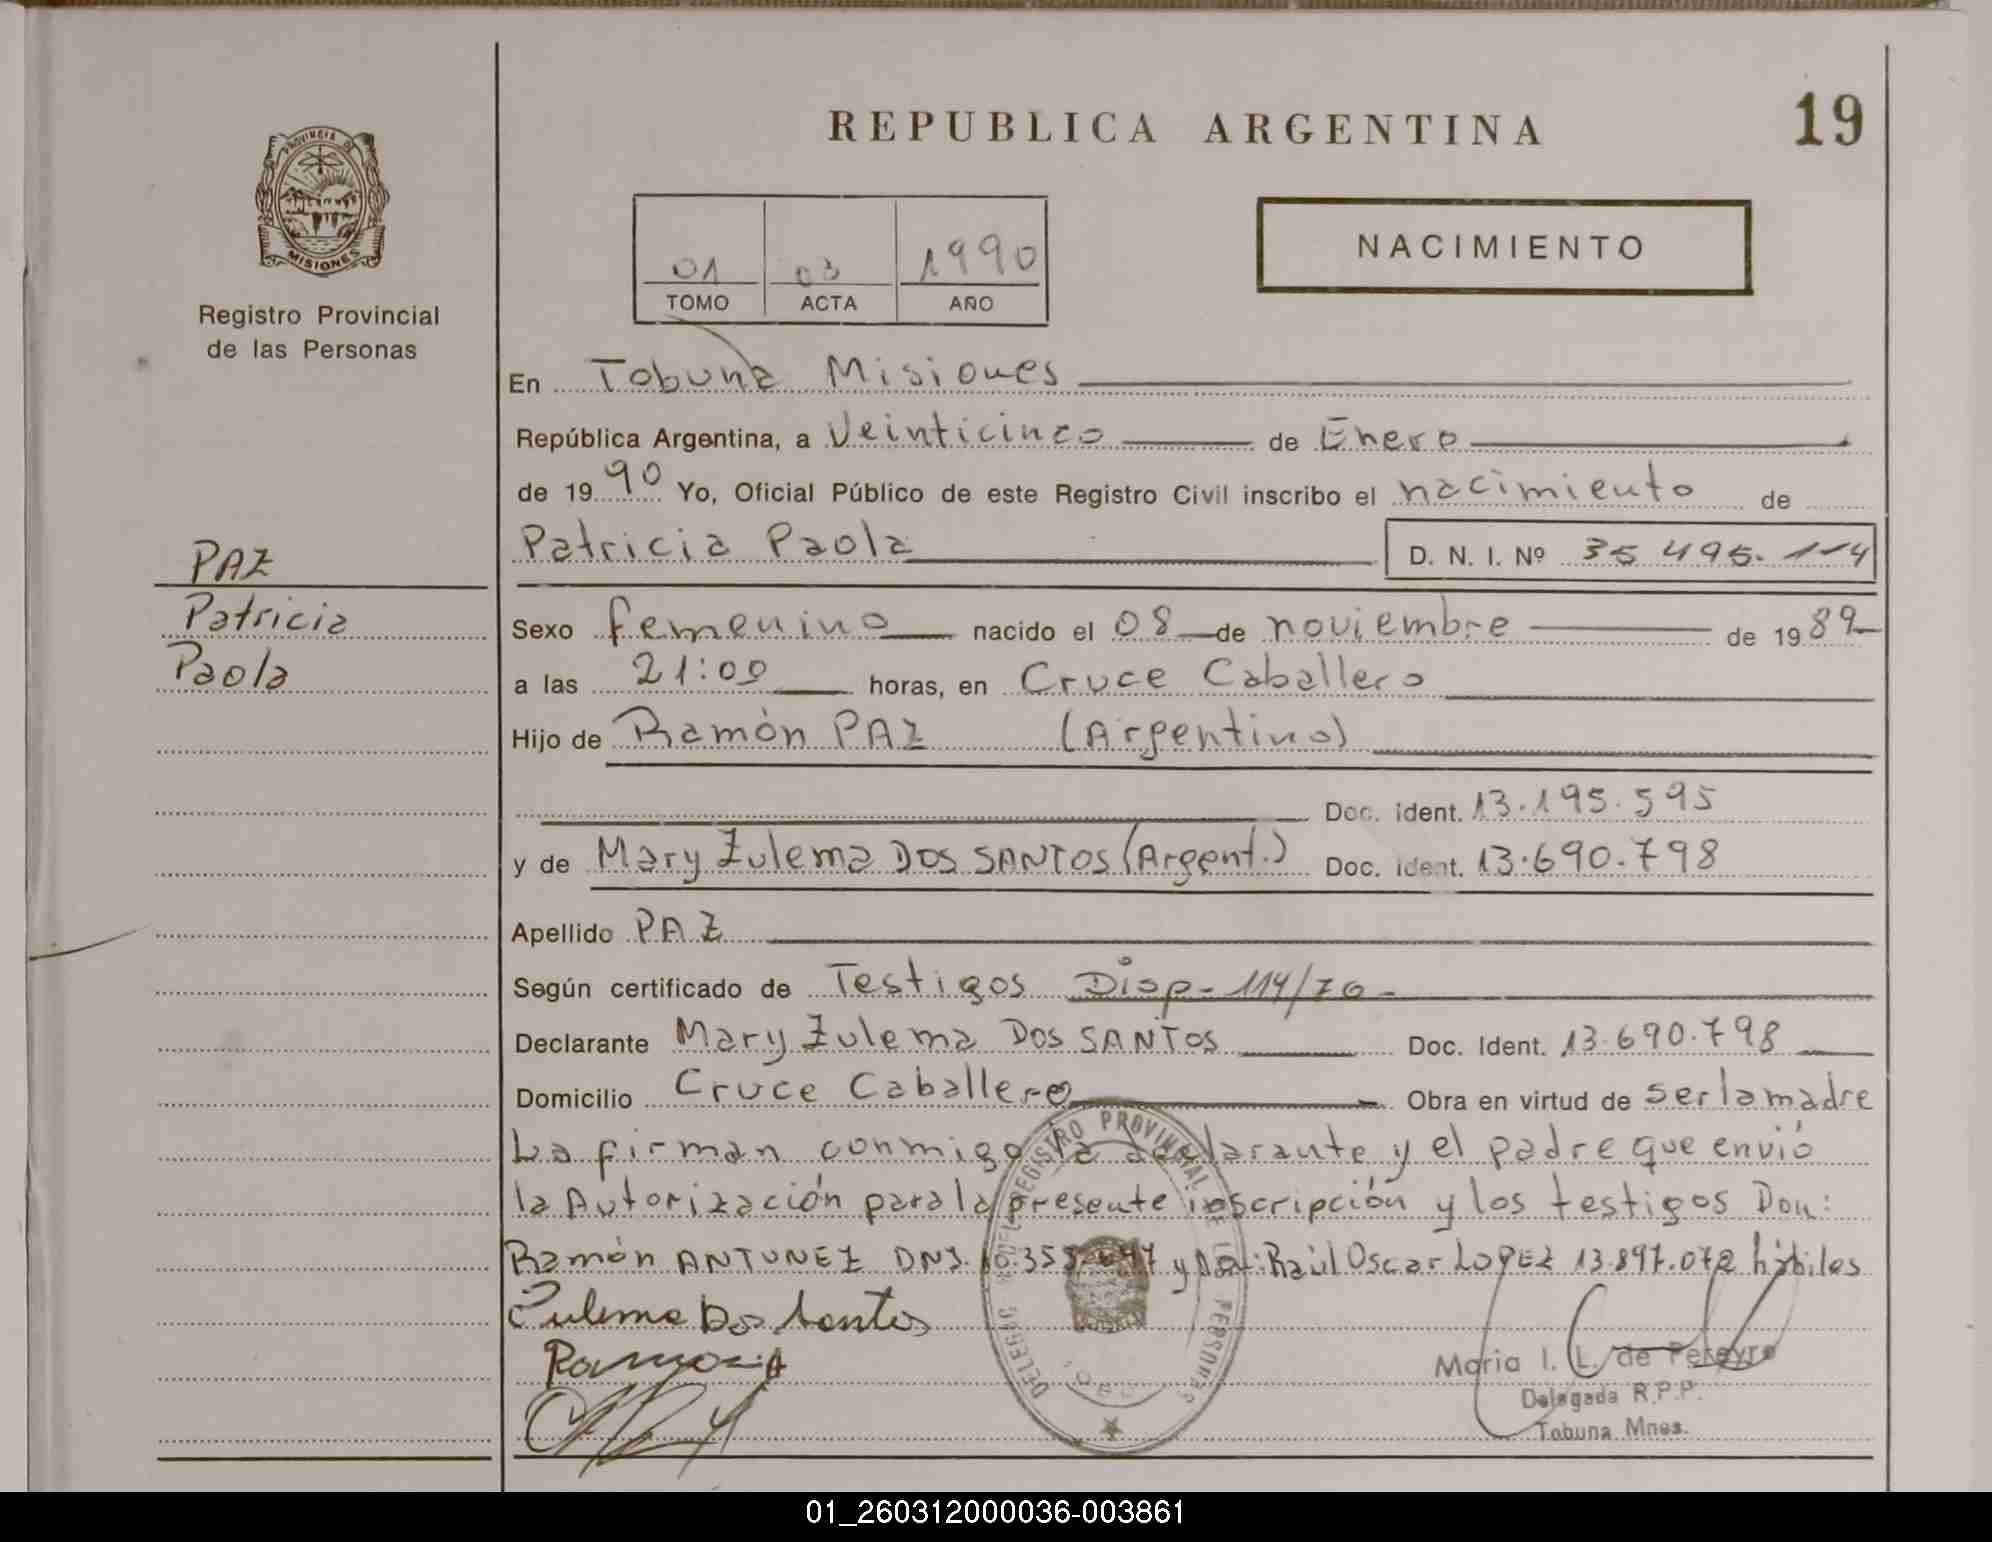 REPUBLICA ARGENTINA
19
PROVINCIA DE
MISIONES
Registro Provincial
de las Personas
01 03 1990
TOMO ACTA AÑO
NACIMIENTO
En Tobuna Misiones
República Argentina, a Veinticinco de Enero
de 1990 Yo, Oficial Público de este Registro Civil inscribo el nacimiento de
Patricia Paola D. N. I. Nº 35 495.114
PAZ
Patricia
Paola
Sexo femenino nacido el 08 de noviembre de 1989
a las 21:00 horas, en Cruce Caballero
Hijo de Ramón PAZ (Argentino)
Doc. ident. 13.195.595
y de Mary Zulema DOS SANTOS (Argent.) Doc. ident. 13.690.798
Apellido PAZ
Según certificado de Testigos Disp- 114/70-
Declarante Mary Zulema DOS SANTOS Doc. Ident. 13.690.798
Domicilio Cruce Caballero Obra en virtud de ser la madre
La firman conmigo la declarante y el padre que envió
la Autorización para la presente inscripción y los testigos Don:
Ramón ANTUNEZ DNI. y Raúl Oscar LOPEZ 13.897.072 hábiles
Zulema Dos Santos
REGISTRO PROVINCIAL DE LAS PERSONAS
Maria I. L. de Pereyra
Delegada R.P.P.
Tobuna Mnes.
01_260312000036-003861